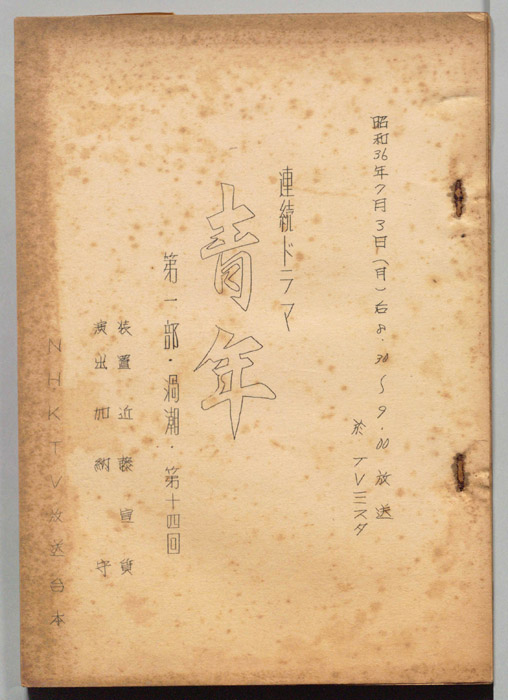 昭和36年7月3日(月)后8.30〜9.00放送
於 TVミスタ
連続ドラマ
青年
第一部・渦潮・第十四回
装置 近藤宣貨
演出 加納 守
NHKTV放送台本